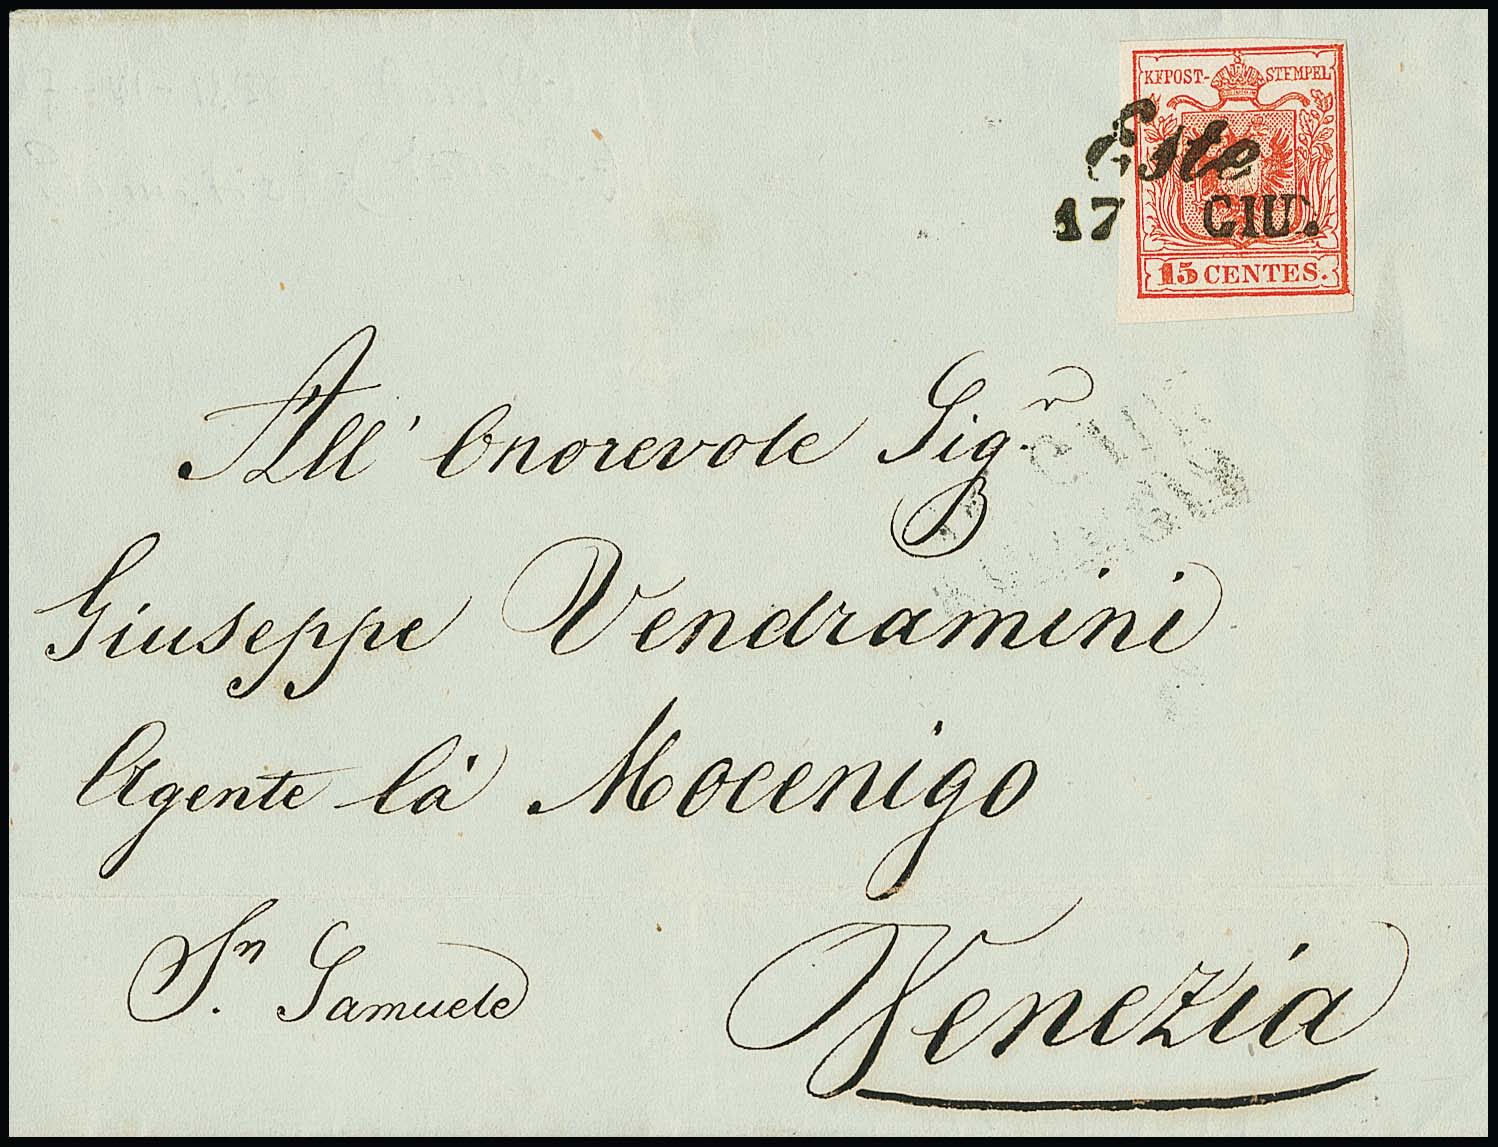 KKPOST-STEMPEL
Este
17 GIU.
15 CENTES.
All' Onorevole Sigr.
Giuseppe Vendramini
Agente Cà Mocenigo
Sn. Samuele
Venezia